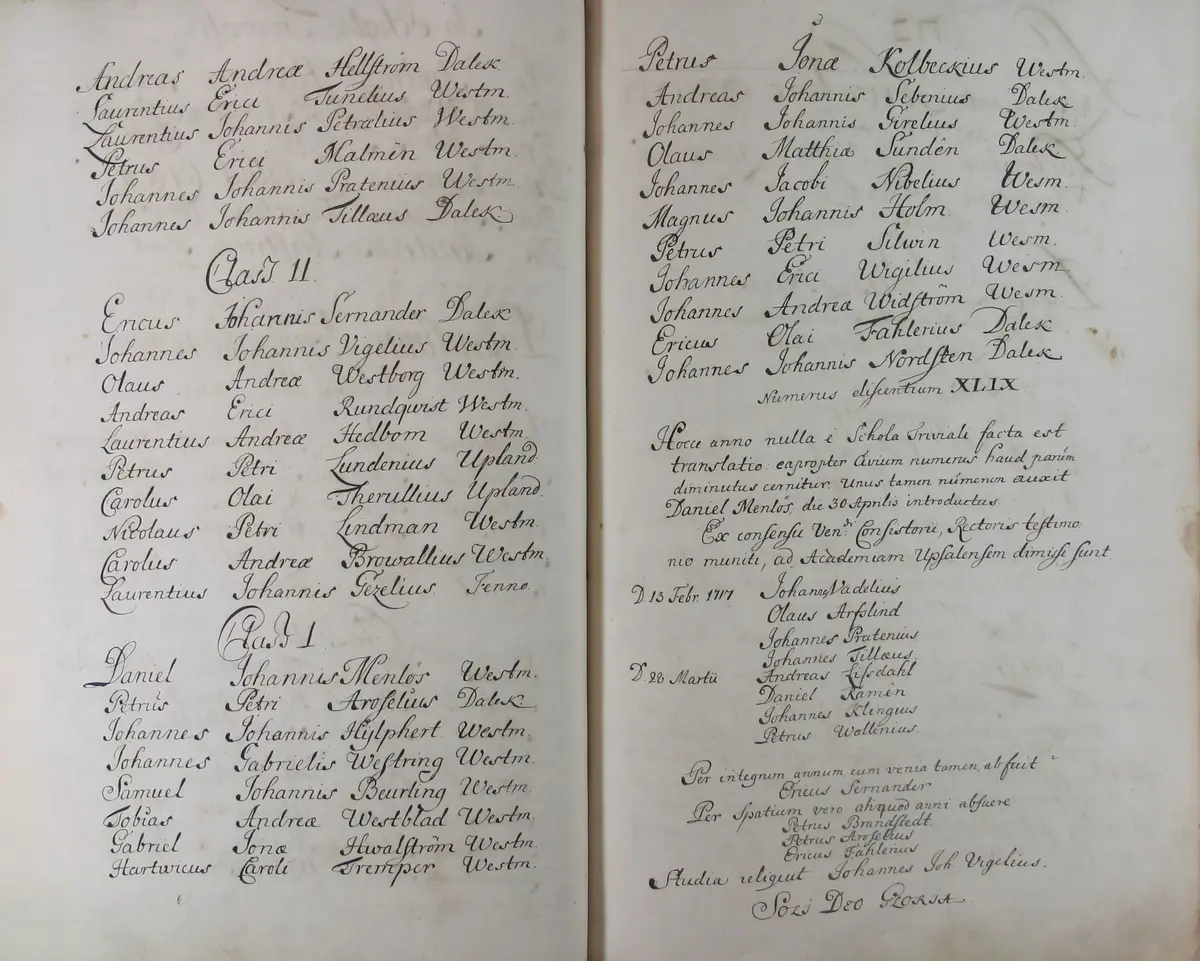 Andreas Andreæ Hellström Dalek.
Laurentius Erici Tunelius Westm.
Laurentius Johannis Petrælius Westm.
Petrus Erici Malmén Westm.
Johannes Johannis Pratenius Westm.
Johannes Johannis Tillæus Dalek.
Class. II.
Ericus Johannis Sernander Dalek
Johannes Johannis Vigelius Westm.
Olaus Andreæ Westborg Westm.
Andreas Erici Rundqwist Westm.
Laurentius Andreæ Hedbom Westm.
Petrus Petri Lundenius Upland.
Carolus Olai Therullius Upland.
Nicolaus Petri Lindman Westm.
Carolus Andreæ Browallius Westm.
Laurentius Johannis Gezelius Fenno.
Class I.
Daniel Johannis Menlös Westm.
Petrus Petri Aroselius Dalek.
Johannes Johannis Hÿlphert Westm.
Johannes Gabrielis Westring Westm.
Samuel Johannis Beurling Westm.
Tobias Andreæ Westblad Westm.
Gabriel Jonæ Hwalström Westm.
Hartwicus Caroli Tremper Westm.
Petrus Jonæ Kolbeckius Westm
Andreas Johannis Sebenius Dalek
Johannes Johannis Girelius Westm.
Olaus Matthiæ Sundén Dalek
Johannes Jacobi Nibelius Wesm.
Magnus Johannis Holm. Wesm.
Petrus Petri Silwin Wesm.
Johannes Erici Wigilius Wesm.
Johannes Andreæ Widström Wesm.
Ericus Olai Fahlerius Dalek
Johannes Johannis Nordsten Dalek
Numerus discentium XLIX.
Hocce anno nulla è Schola Triviali facta est
translatio: eapropter Civium numerus haud parùm
diminutus cernitur. Unus tamen númerum auxit
Daniel Menlös, die 30 Aprilis introductus.
Ex consensu Ven: Consistorii, Rectoris testimo:
nio muniti, ad Academiam Upsalensem dimissi sunt
D. 13 Febr. 1717 Johannes Vadelius
Olaus Arfslind
Johannes Pratenius
Johannes Tillæus.
D. 28 Martii Andreas Lissdahl
Daniel Kamén
Johannes Klingius
Petrus Wollenius.
Per integrum annum, cum venia tamen, abfuit
Ericus Sernander
Per spatium vero aliquod anni abfuere
Petrus Brandstedt.
Petrus Aroselius
Ericus Fahlerius
Studia reliquit Johannes Joh. Vigelius.
Soli Deo Gloria